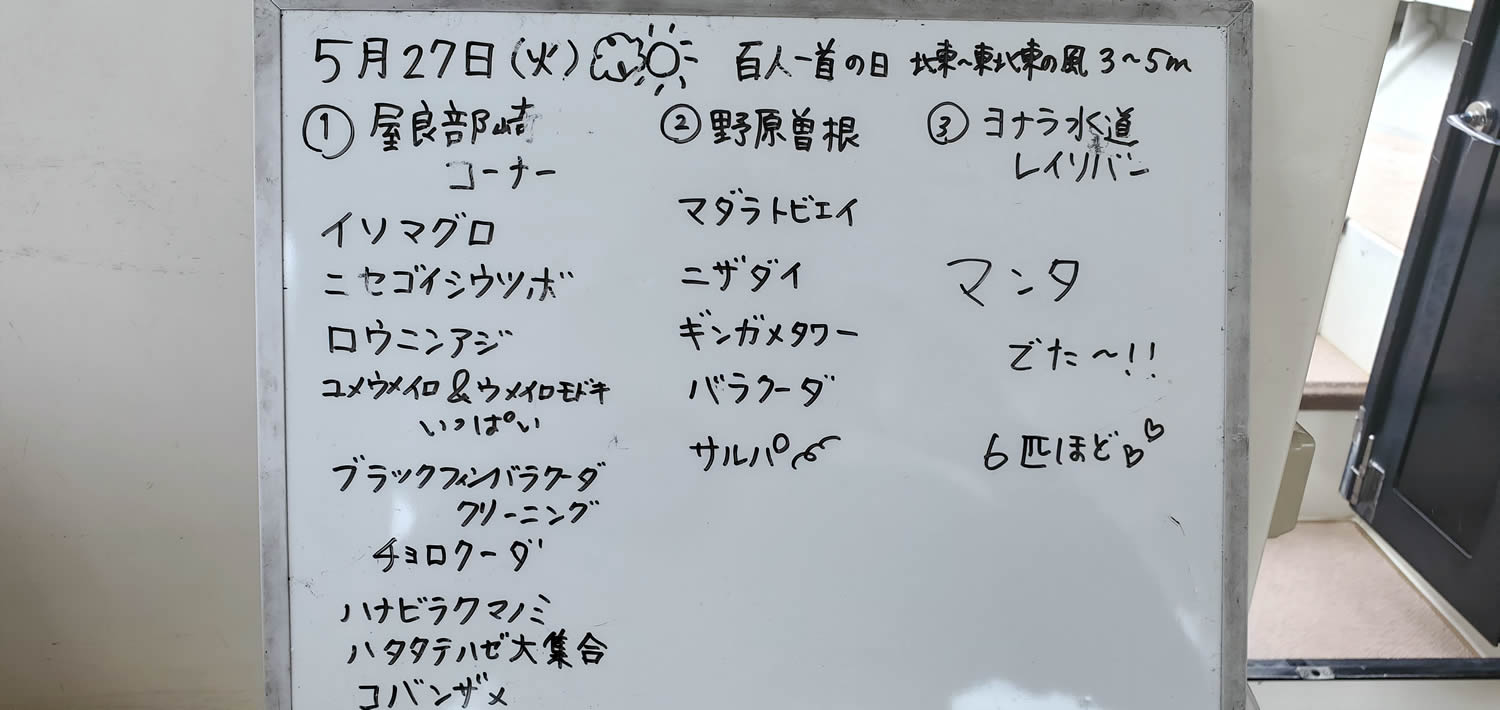 5月27日(火) 百人一首の日 北東～東北東の風 3～5m
① 屋良部崎
コーナー
イソマグロ
ニセゴイシウツボ
ロウニンアジ
ユメウメイロ & ウメイロモドキ
いっぱい
ブラックフィンバラクーダ
クリーニング
チョロクーダ
ハナビラクマノミ
ハタタテハゼ大集合
コバンザメ
② 野原曽根
マダラトビエイ
ニザダイ
ギンガメタワー
バラクーダ
サルパ
③ ヨナラ水道
レイリバン
マンタ
でた～!!
6匹ほど♡♡